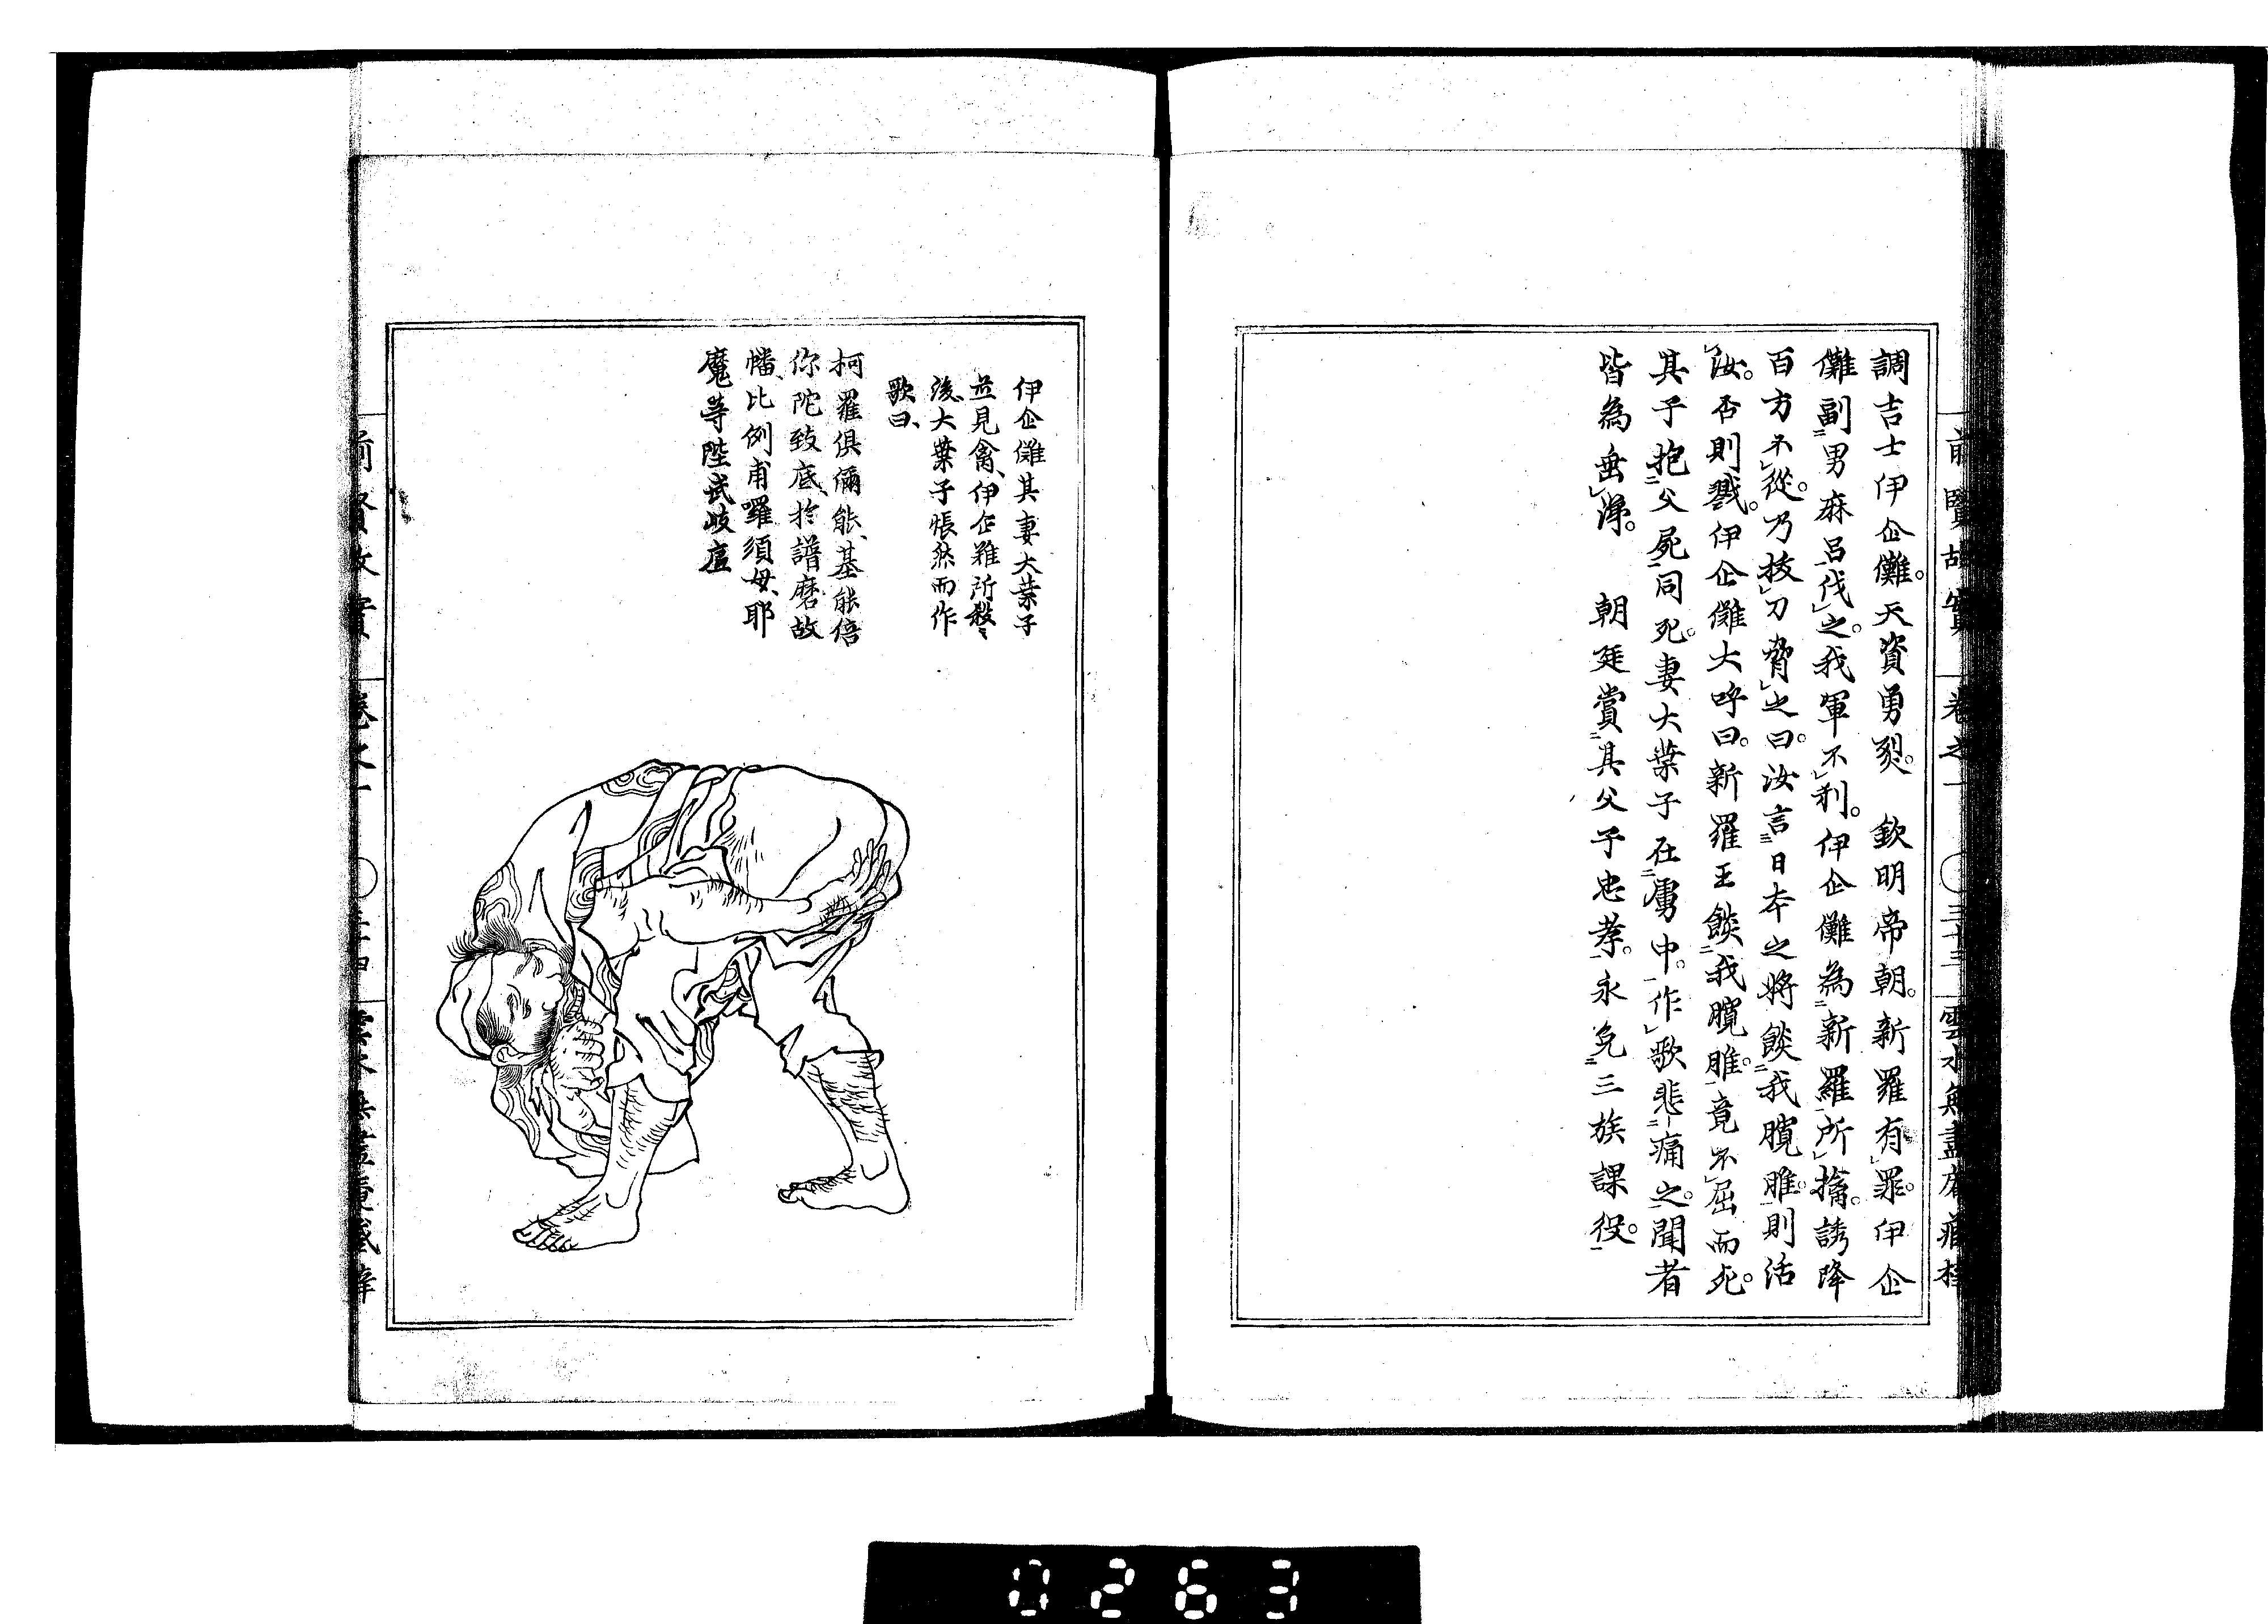 調吉士伊企儺。天資勇烈。 欽明帝朝。新羅有罪。伊企
儺副男麻呂伐之。我軍不利。伊企儺為新羅所擒。誘降
百方不從。乃拔刀脅之曰。汝言日本之將餤我臗脽。則活
汝。否則戮。伊企儺大呼曰。新羅王餤我臗脽。竟不屈而死。
其子抱父屍同死。妻大葉子在虜中。作歌悲痛之。聞者
皆為垂涕。 朝廷賞其父子忠孝。永免三族課役。
前賢故實 卷之一 三十三 雲水無盡庵藏
伊企儺其妻大葉子
並見禽、伊企難所殺〻
後、大葉子悵然而作
歌曰、
柯羅俱爾能、基能倍
你陀致底、於譜磨故
幡、比例甫囉須母、耶
魔等陛武岐底
前賢故實 卷之一
0263